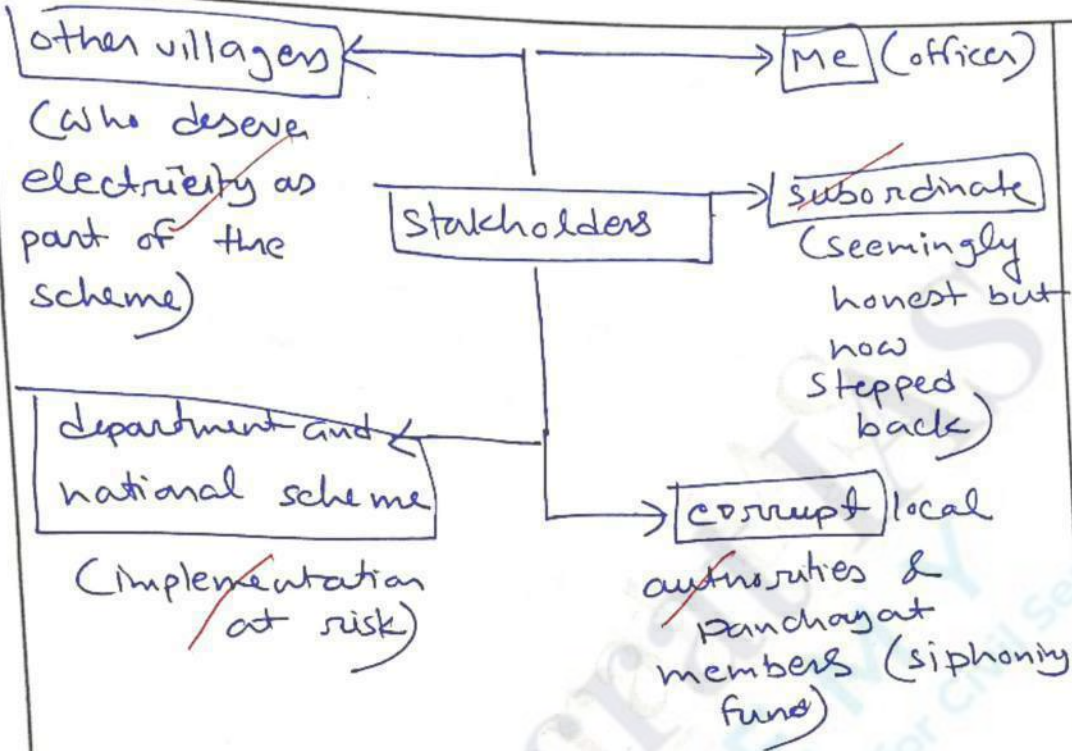 other villagers
(who deserve
electricity as
part of the
scheme)
Me (officer)
Stakholders
subordinate
(seemingly
honest but
now
stepped
back)
department and
national scheme
(implementation
at risk)
corrupt local
authorities &
panchayat
members (siphoning
fund)